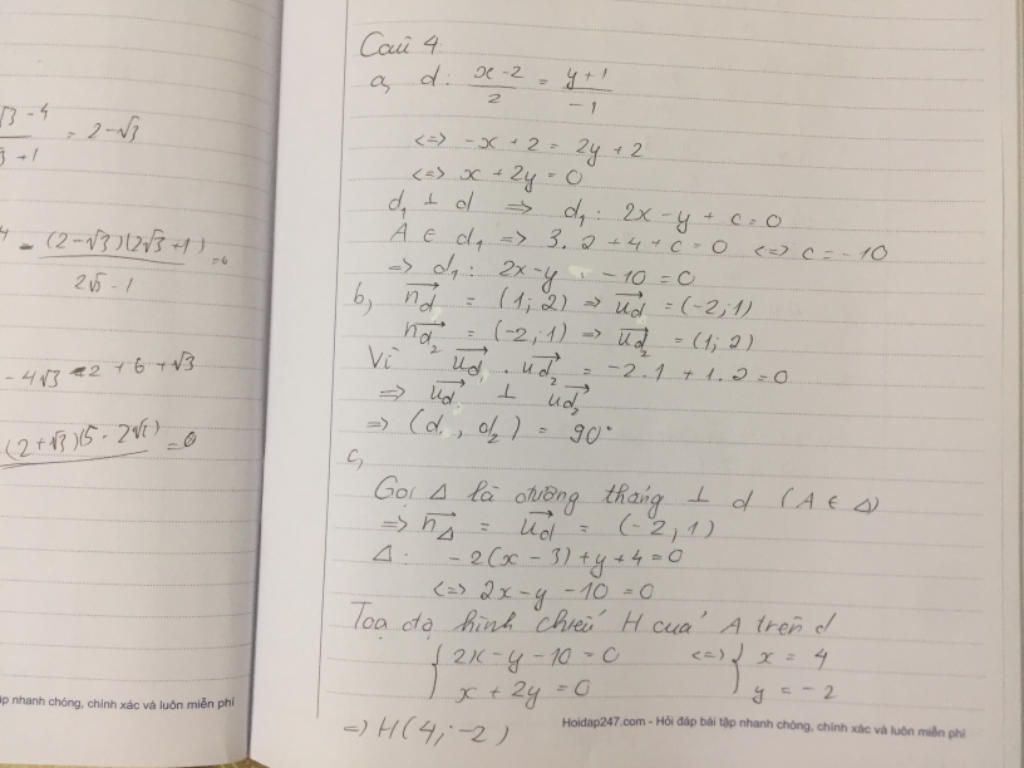 √3 - 4 / 3 + 1 = 2 - √3
- (2 - √3)(2√3 + 1) / 2√5 - 1 = 6
- 4√3 - 2 + 6 + √3
(2 + √3)(5 - 2√1) = 0
ập nhanh chóng, chính xác và luôn miễn phí
Caû 4
a, d: x - 2 / 2 = y + 1 / -1
<=> -x + 2 = 2y + 2
<=> x + 2y = 0
d₁ ⊥ d => d₁: 2x - y + c = 0
A ∈ d₁ => 3.2 + 4 + c = 0 <=> c = -10
=> d₁: 2x - y - 10 = 0
b, n_d→ = (1; 2) => u_d→ = (-2; 1)
n_d₂→ = (-2; 1) => u_d₂→ = (1; 2)
Vì u_d→ . u_d₂→ = -2.1 + 1.2 = 0
=> u_d→ ⊥ u_d₂→
=> (d, d₂) = 90°
c,
Gọi Δ là đường thẳng ⊥ d (A ∈ Δ)
=> n_Δ→ = u_d→ = (-2, 1)
Δ: -2(x - 3) + y + 4 = 0
<=> 2x - y - 10 = 0
Toạ độ hình chiếu H của A trên d
{ 2x - y - 10 = 0 <=> { x = 4
x + 2y = 0 y = -2
=> H(4; -2)
Hoidap247.com - Hỏi đáp bài tập nhanh chóng, chính xác và luôn miễn phí